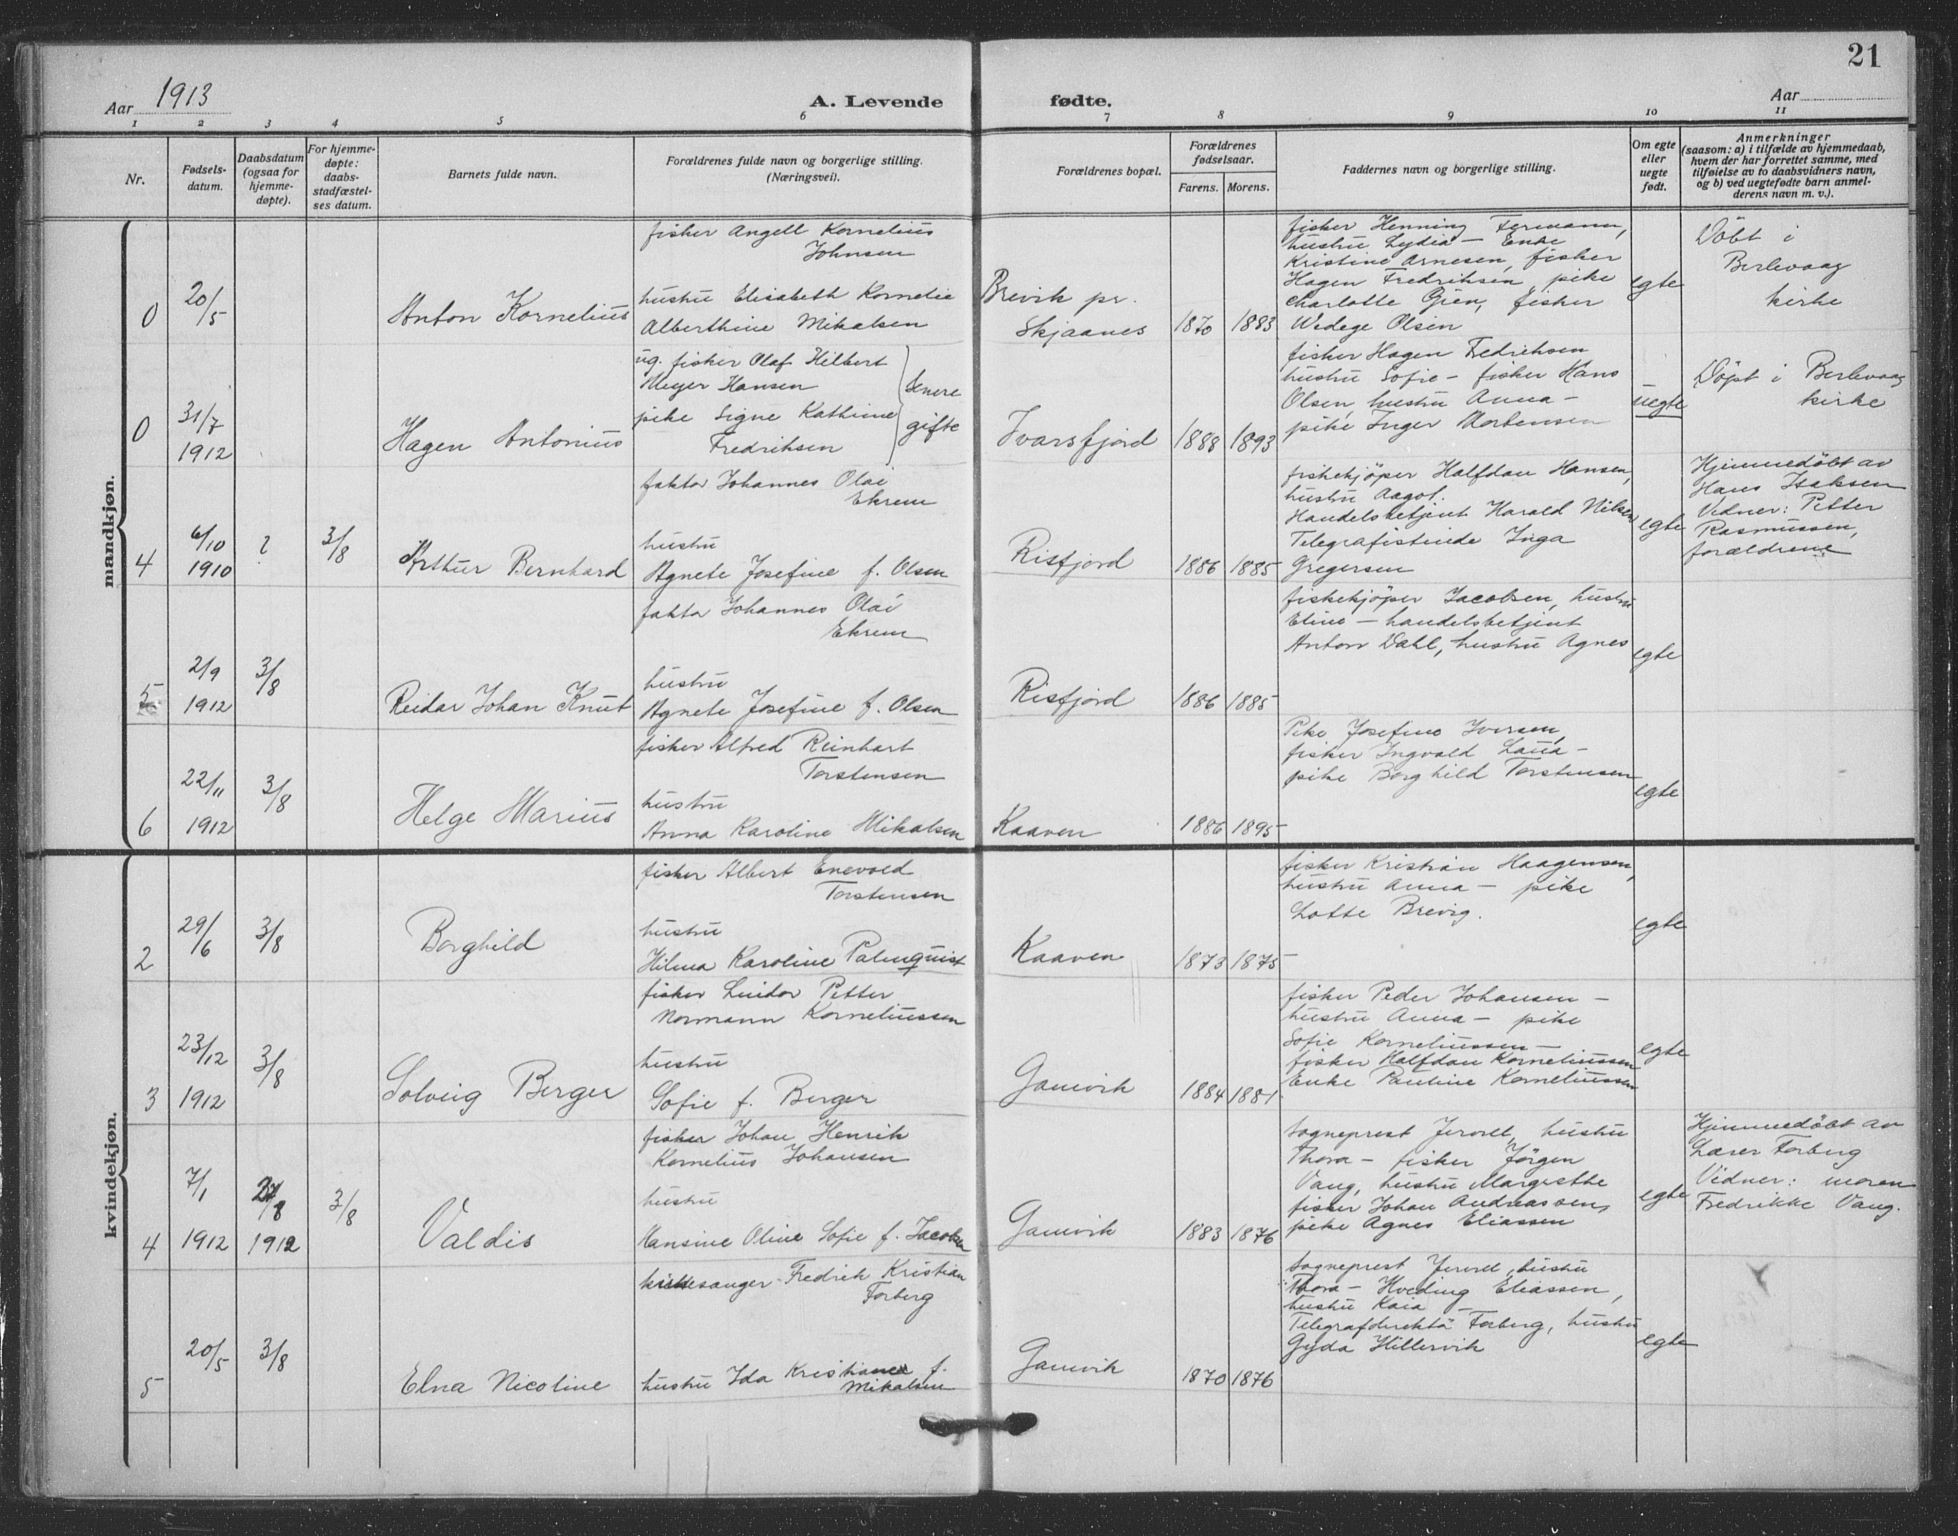 21
Aar 1913
A. Levende fødte.
Aar
1 2 3 4 5 6 7 8 9 10 11
Nr.
Fødsels-
datum.
Daabsdatum
(ogsaa for
hjemme-
døpte).
For hjemme-
døpte:
daabs-
stadfæstel-
ses datum.
Barnets fulde navn.
Forældrenes fulde navn og borgerlige stilling.
(Næringsvei).
Forældrenes bopæl.
Forældrenes
fødselsaar.
Farens. Morens.
Faddernes navn og borgerlige stilling.
Om egte
eller
uegte
født.
Anmerkninger
(saasom: a) i tilfælde av hjemmedaab,
hvem der har forrettet samme, med
tilføielse av to daabsvidners navn,
og b) ved uegtefødte barn anmel-
derens navn m. v.).
mandkjøn.
0
20/5
Anton Kornelius
fisker Angell Kornelius
Johnsen
hustru Elisabeth Kornelia
Alberthine Mikalsen
Brevik pr.
Skjaanes
1870 1883
fisker Henning Fermann,
hustru Lydia - Enke
Kristine Arnesen, fisker
Hagen Fredriksen, pike
Charlotte Gien, fisker
Wedege Olsen
egte
Döbt i
Berlevaag
kirke
0
31/7
1912
Hagen Antonius
ug. fisker Olaf Hilbert
Meyer Hansen
pike Signe Kathrine
Fredriksen
senere
gifte
Ivarsfjord
1888 1893
fisker Hagen Fedriksen
hustru Sofie - fisker Hans
Olsen, hustru Anna -
pike Inger Mortensen
uegte
Döpt i Berlevaag
kirke
4
6/10
1910
?
3/8
Arthur Bernhard
faktor Johannes Olai
Ekrem
hustru
Agnete Josefine f. Olsen
Risfjord
1886 1885
fiskekjöper Halfdan Hansen,
hustru Aagot.
Handelsbetjent Harald Nilsen
Telegrafistinde Inga
Gregersen
egte
Hjemmedöbt av
Hans Isaksen
Vidner: Petter
Rasmussen,
forældrene
5
2/9
1912
3/8
Reidar Johan Knut
faktor Johannes Olai
Ekrem
hustru
Agnete Josefine f. Olsen
Risfjord
1886 1885
fiskekjöper Jacobsen, hustru
Eline - handelsbetjent
Anton Dahl, hustru Agnes
egte
6
22/11
1912
3/8
Helge Marius
fisker Alfred Reinhart
Torstensen
hustru
Anna Karoline Mikalsen
Kaaven
1886 1895
Pike Josefine Iversen,
fisker Ingvald
pike Borghild Torstensen
egte
kvindekjøn.
2
29/6
3/8
Borghild
fisker Albert Enevold
Torstensen
hustru
Hilma Karoline Palmquist
Kaaven
1873 1875
fisker Kristian Haagensen,
hustru Anna - pike
Lotte Brevig.
egte
3
23/12
1912
3/8
Solveig Berger
fisker Luidor Petter
Normann Korneliussen
hustru
Sofie f. Berger
Gamvik
1884 1881
fisker Peder Johansen -
hustru Anna - pike
Sofie Korneliussen -
fisker Halfdan Korneliussen
Enke Pauline Korneliussen
egte
4
7/1
1912
1912
3/8
Valdis
fisker Johan Henrik
Kornelius Johansen
hustru
Hansine Oline Sofie f. Jacobsen
Gamvik
1883 1876
sogneprest Jervell, hustru
Thora - fisker Jörgen
Vang, hustru Margrethe
fisker Johan Andreassen,
pike Agnes Eliassen
egte
Hjemmedöbt av
Lærer Forberg
Vidner: moren
Fredrikke Vang.
5
20/5
3/8
Elna Nicoline
kirkesanger Fredrik Kristian
Forberg
hustru Ida Kristianea f.
Mikalsen
Gamvik
1870 1876
sogneprest Jervell, hustru
Thora - Hveding Eliassen,
hustru Kaia -
Forberg, hustru
Gyda Hillervik
egte